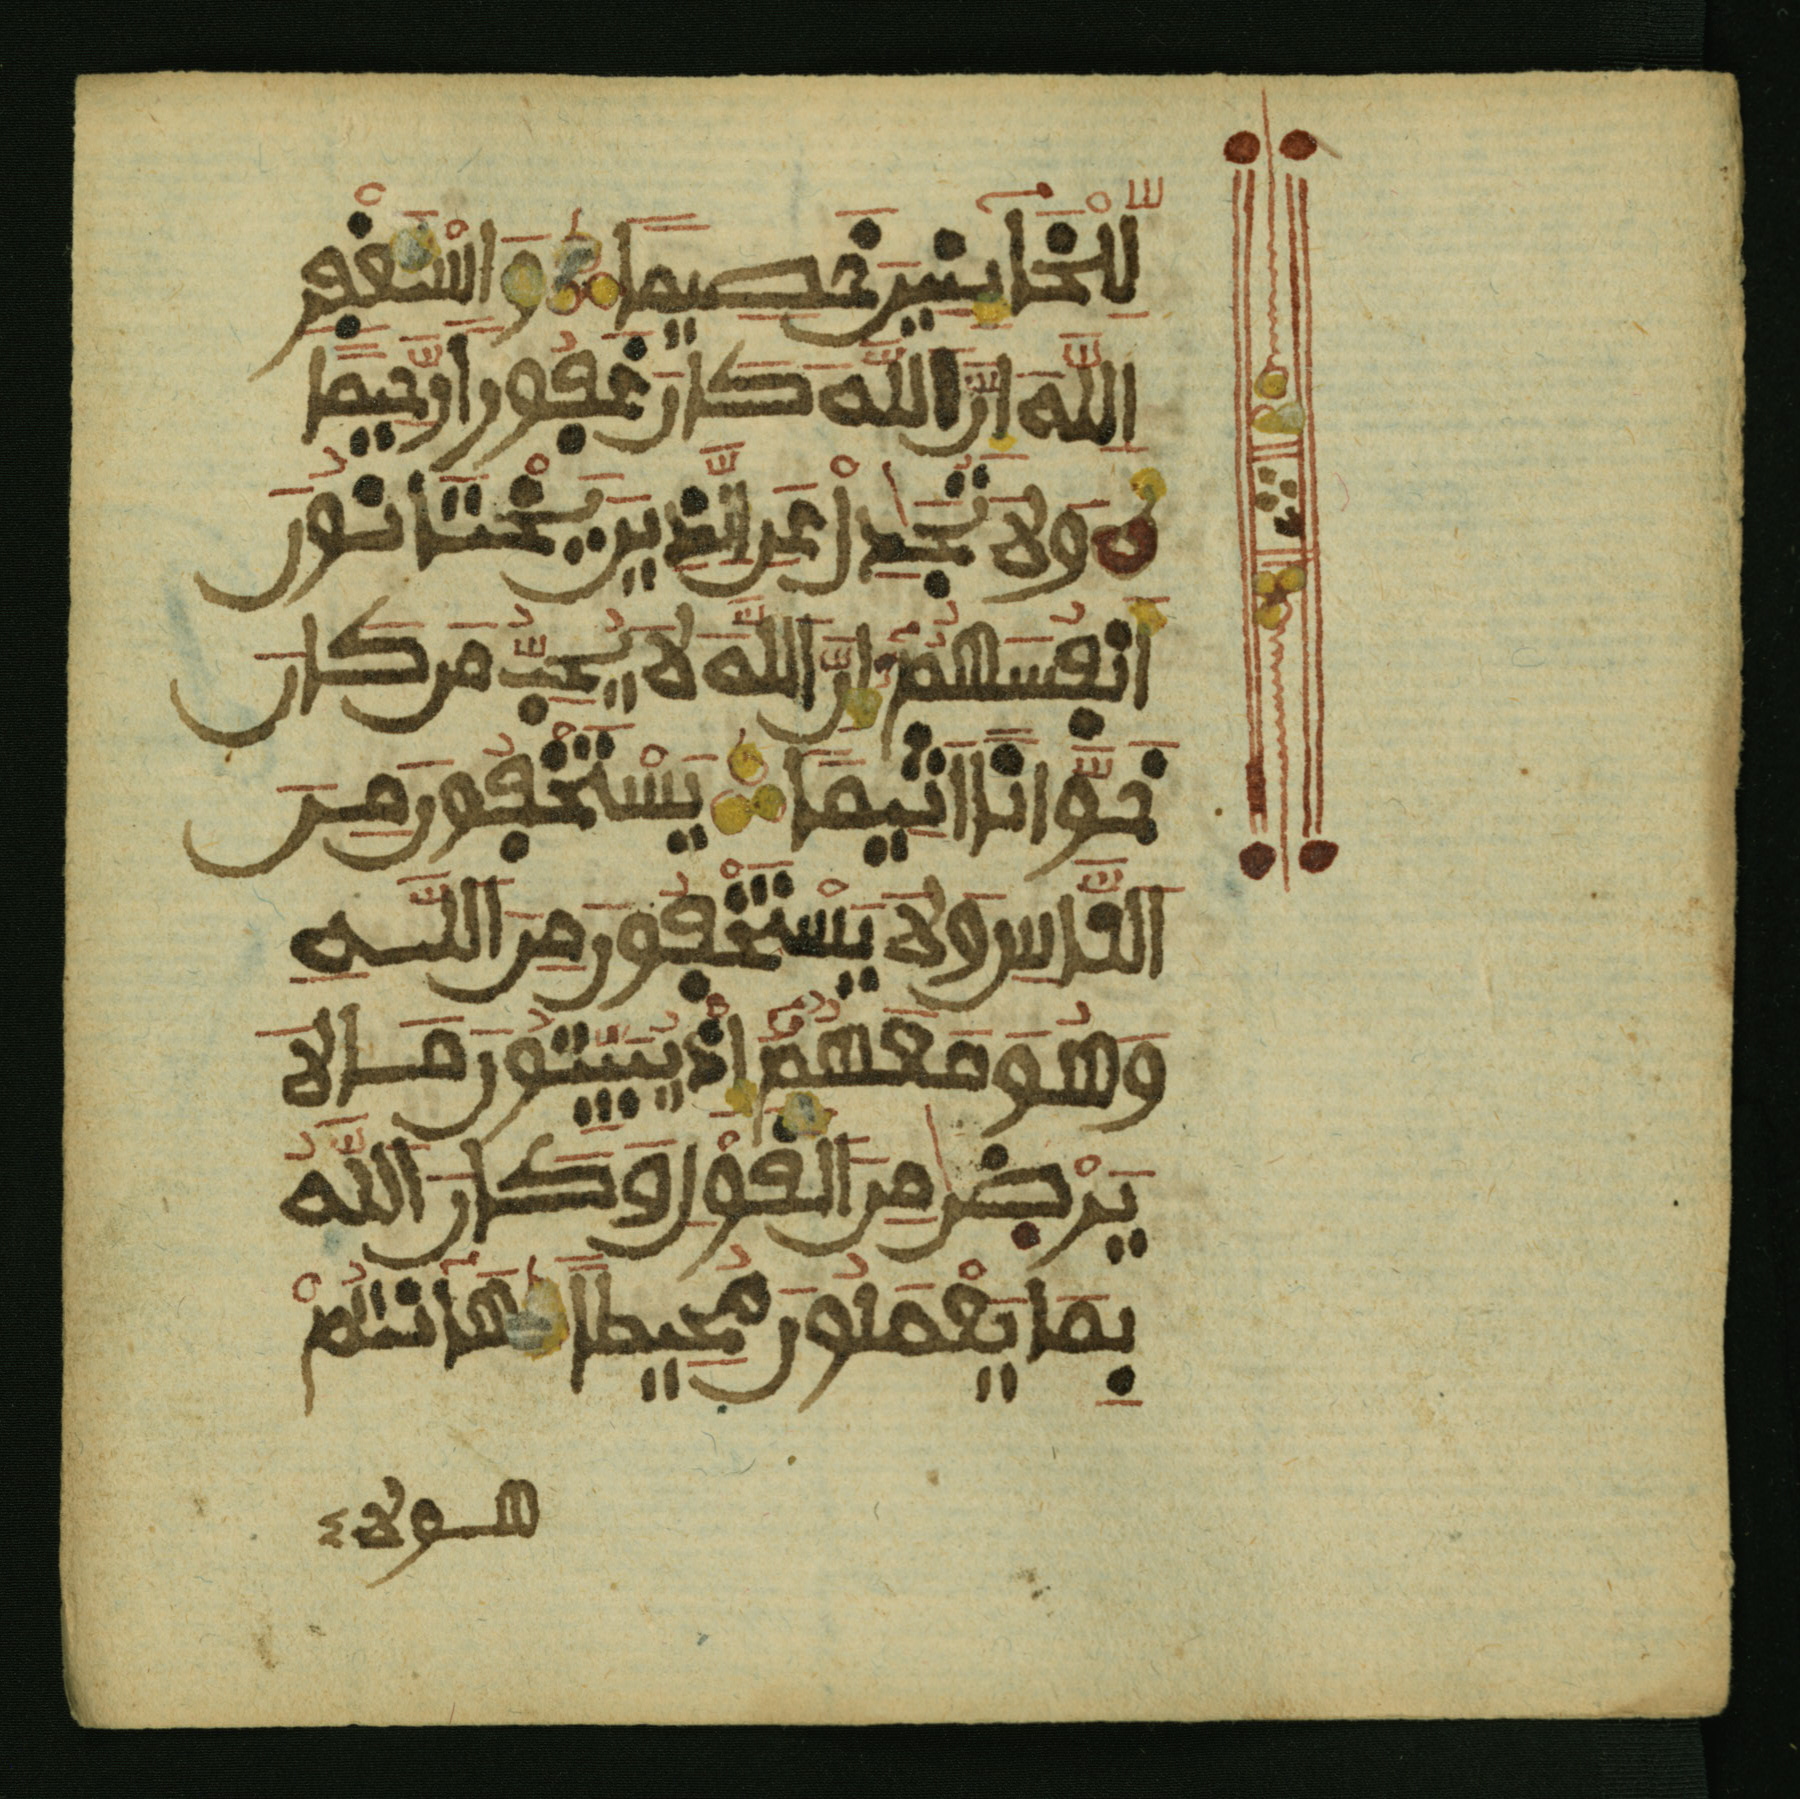 لِّلْخَآئِنِينَ خَصِيمًا وَاسْتَغْفِرِ
اِللَّهَ إِنَّ اَللَّهَ كَانَ غَفُورًا رَّحِيمًا
وَلَا تُجَٰدِلْ عَنِ اِلَّذِينَ يَخْتَانُونَ
أَنفُسَهُمُ إِنَّ اَللَّهَ لَا يُحِبُّ مَن كَانَ
خَوَّانًا أَثِيمًا يَسْتَخْفُونَ مِنَ
اَلنَّاسِ وَلَا يَسْتَخْفُونَ مِنَ اَللَّهِ
وَهُوَ مَعَهُمُ إِذْ يُبَيِّتُونَ مَا لَا
يَرْضَىٰ مِنَ اَلْقَوْلِ وَكَانَ اَللَّهُ
بِمَا يَعْمَلُونَ مُحِيطًا هَآ أَنتُمْ
هــولاء